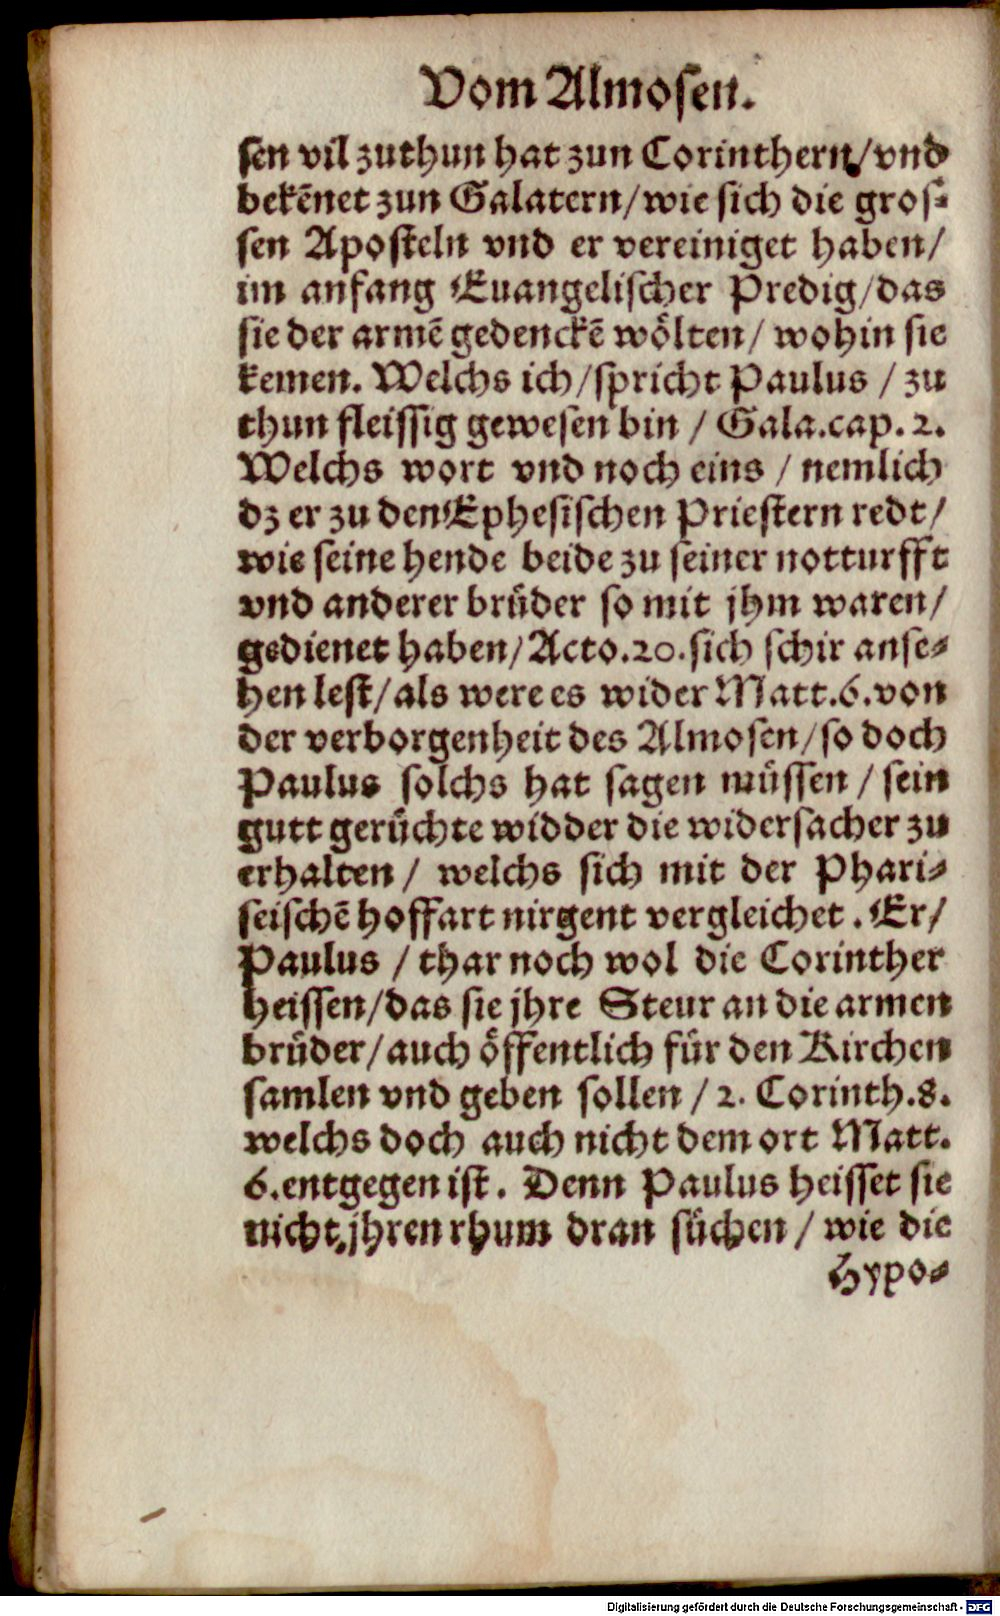 Vom Almosen.
sen vil zuthun hat zun Corinthern/vnd
bekẽnet zun Galatern/wie sich die gros-
sen Aposteln vnd er vereiniget haben/
im anfang Euangelischer Predig/das
sie der armẽ gedenckẽ wölten/ wohin sie
kemen. Welchs ich/spricht Paulus / zu
thun fleissig gewesen bin / Gala.cap. 2.
Welchs wort vnd noch eins / nemlich
dz er zu den Ephesischen Priestern redt/
wie seine hende beide zu seiner notturfft
vnd anderer brüder so mit jhm waren/
gedienet haben/Acto.20.sich schir anse-
hen lest/als were es wider Matt.6.von
der verborgenheit des Almosen/so doch
Paulus solchs hat sagen müssen / sein
gutt gerüchte widder die widersacher zu
erhalten / welchs sich mit der Phari-
seischẽ hoffart nirgent vergleichet. Er/
Paulus / thar noch wol die Corinther
heissen/das sie jhre Steur an die armen
brüder/auch öffentlich für den Kirchen
samlen vnd geben sollen / 2. Corinth.8.
welchs doch auch nicht dem ort Matt.
6.entgegen ist. Denn Paulus heisset sie
nicht jhren rhum dran süchen / wie die
Hypo-
Digitalisierung gefördert durch die Deutsche Forschungsgemeinschaft - DFG